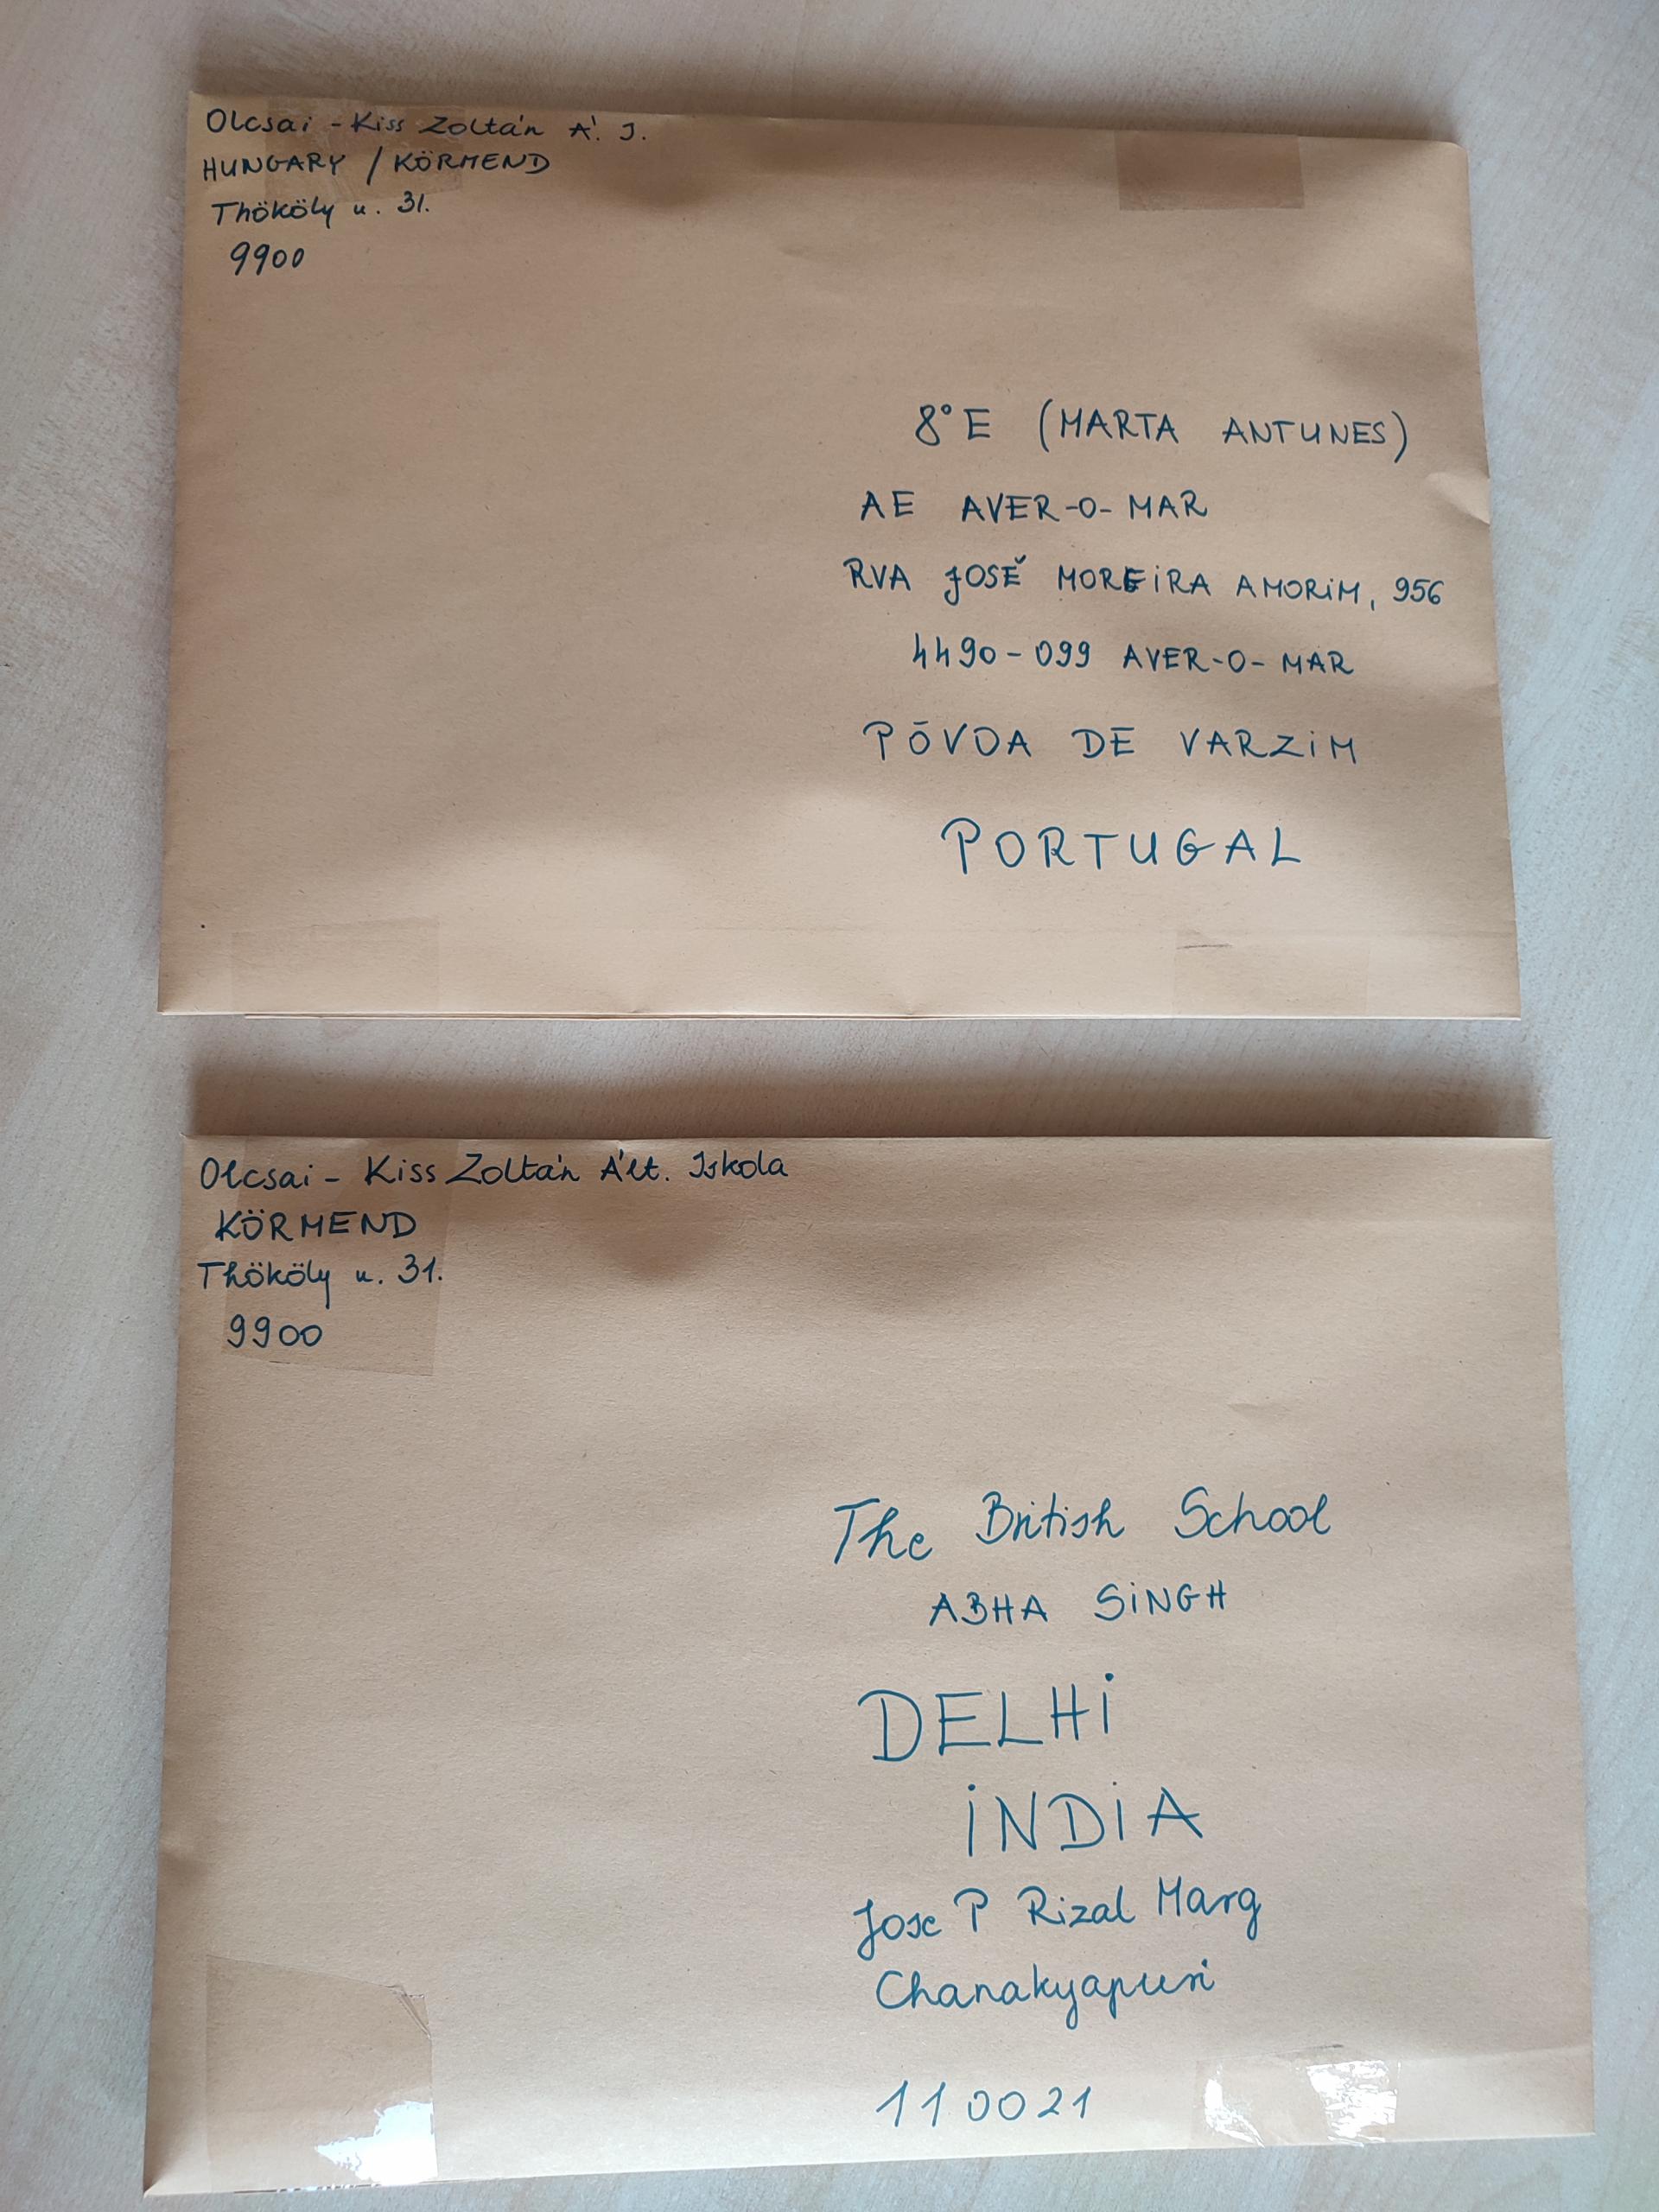 Olcsai - Kiss Zoltán Á. I.
HUNGARY / KÖRMEND
Thököly u. 31.
9900
8°E (MARTA ANTUNES)
AE AVER-O-MAR
RVA JOSÉ MOREIRA AMORIM, 956
4490-099 AVER-O-MAR
PŌVOA DE VARZIM
PORTUGAL
Olcsai - Kiss Zoltán Ált. Iskola
KÖRMEND
Thököly u. 31.
9900
The British School
ABHA SINGH
DELHI
INDIA
Jose P Rizal Marg
Chanakyapuri
110021